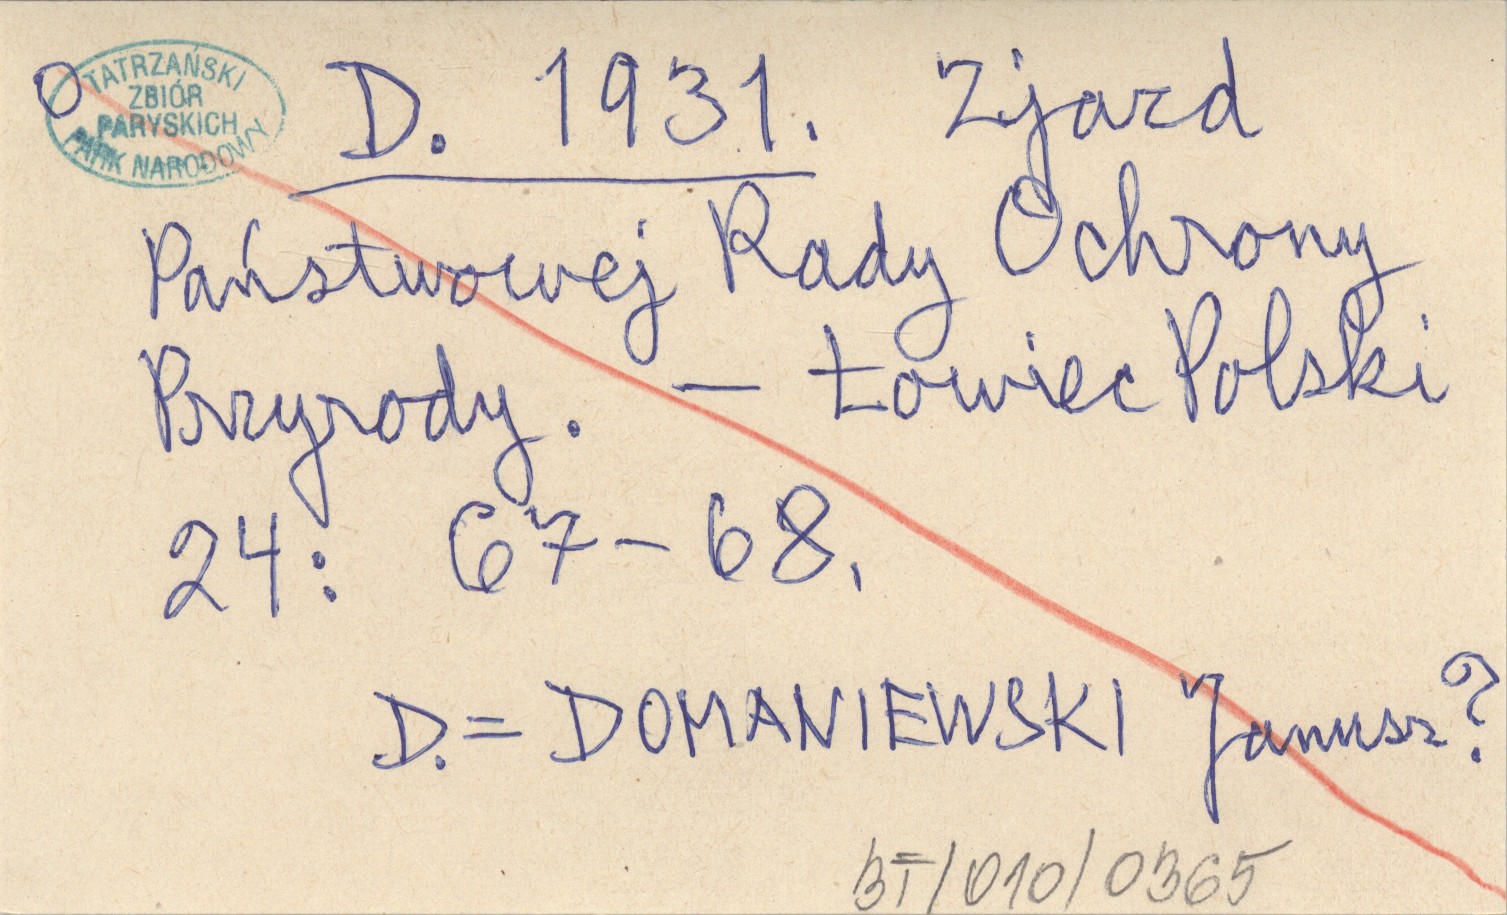 O
TATRZAŃSKI
ZBIÓR
PARYSKICH
PARK NARODOWY
D. 1931. Zjazd
Państwowej Rady Ochrony
Przyrody. — Łowiec Polski
24: 67-68.
D. = DOMANIEWSKI Janusz?
/010/0365